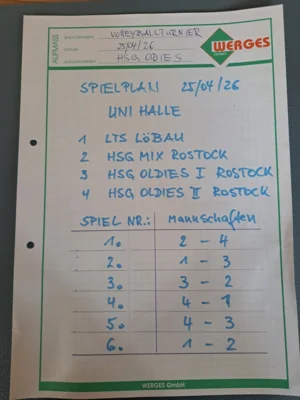 VOLLEYBALLTURNIER
25/04/26
HSG OLDIES
AUFMASS
WERGES
SPIELPLAN 25/04/26
UNI HALLE
1 LTS LÖBAU
2 HSG MIX ROSTOCK
3 HSG OLDIES I ROSTOCK
4 HSG OLDIES II ROSTOCK
SPIEL NR.: Mannschaften
1. 2 - 4
2. 1 - 3
3. 3 - 2
4. 4 - 1
5. 4 - 3
6. 1 - 2
WERGES GmbH